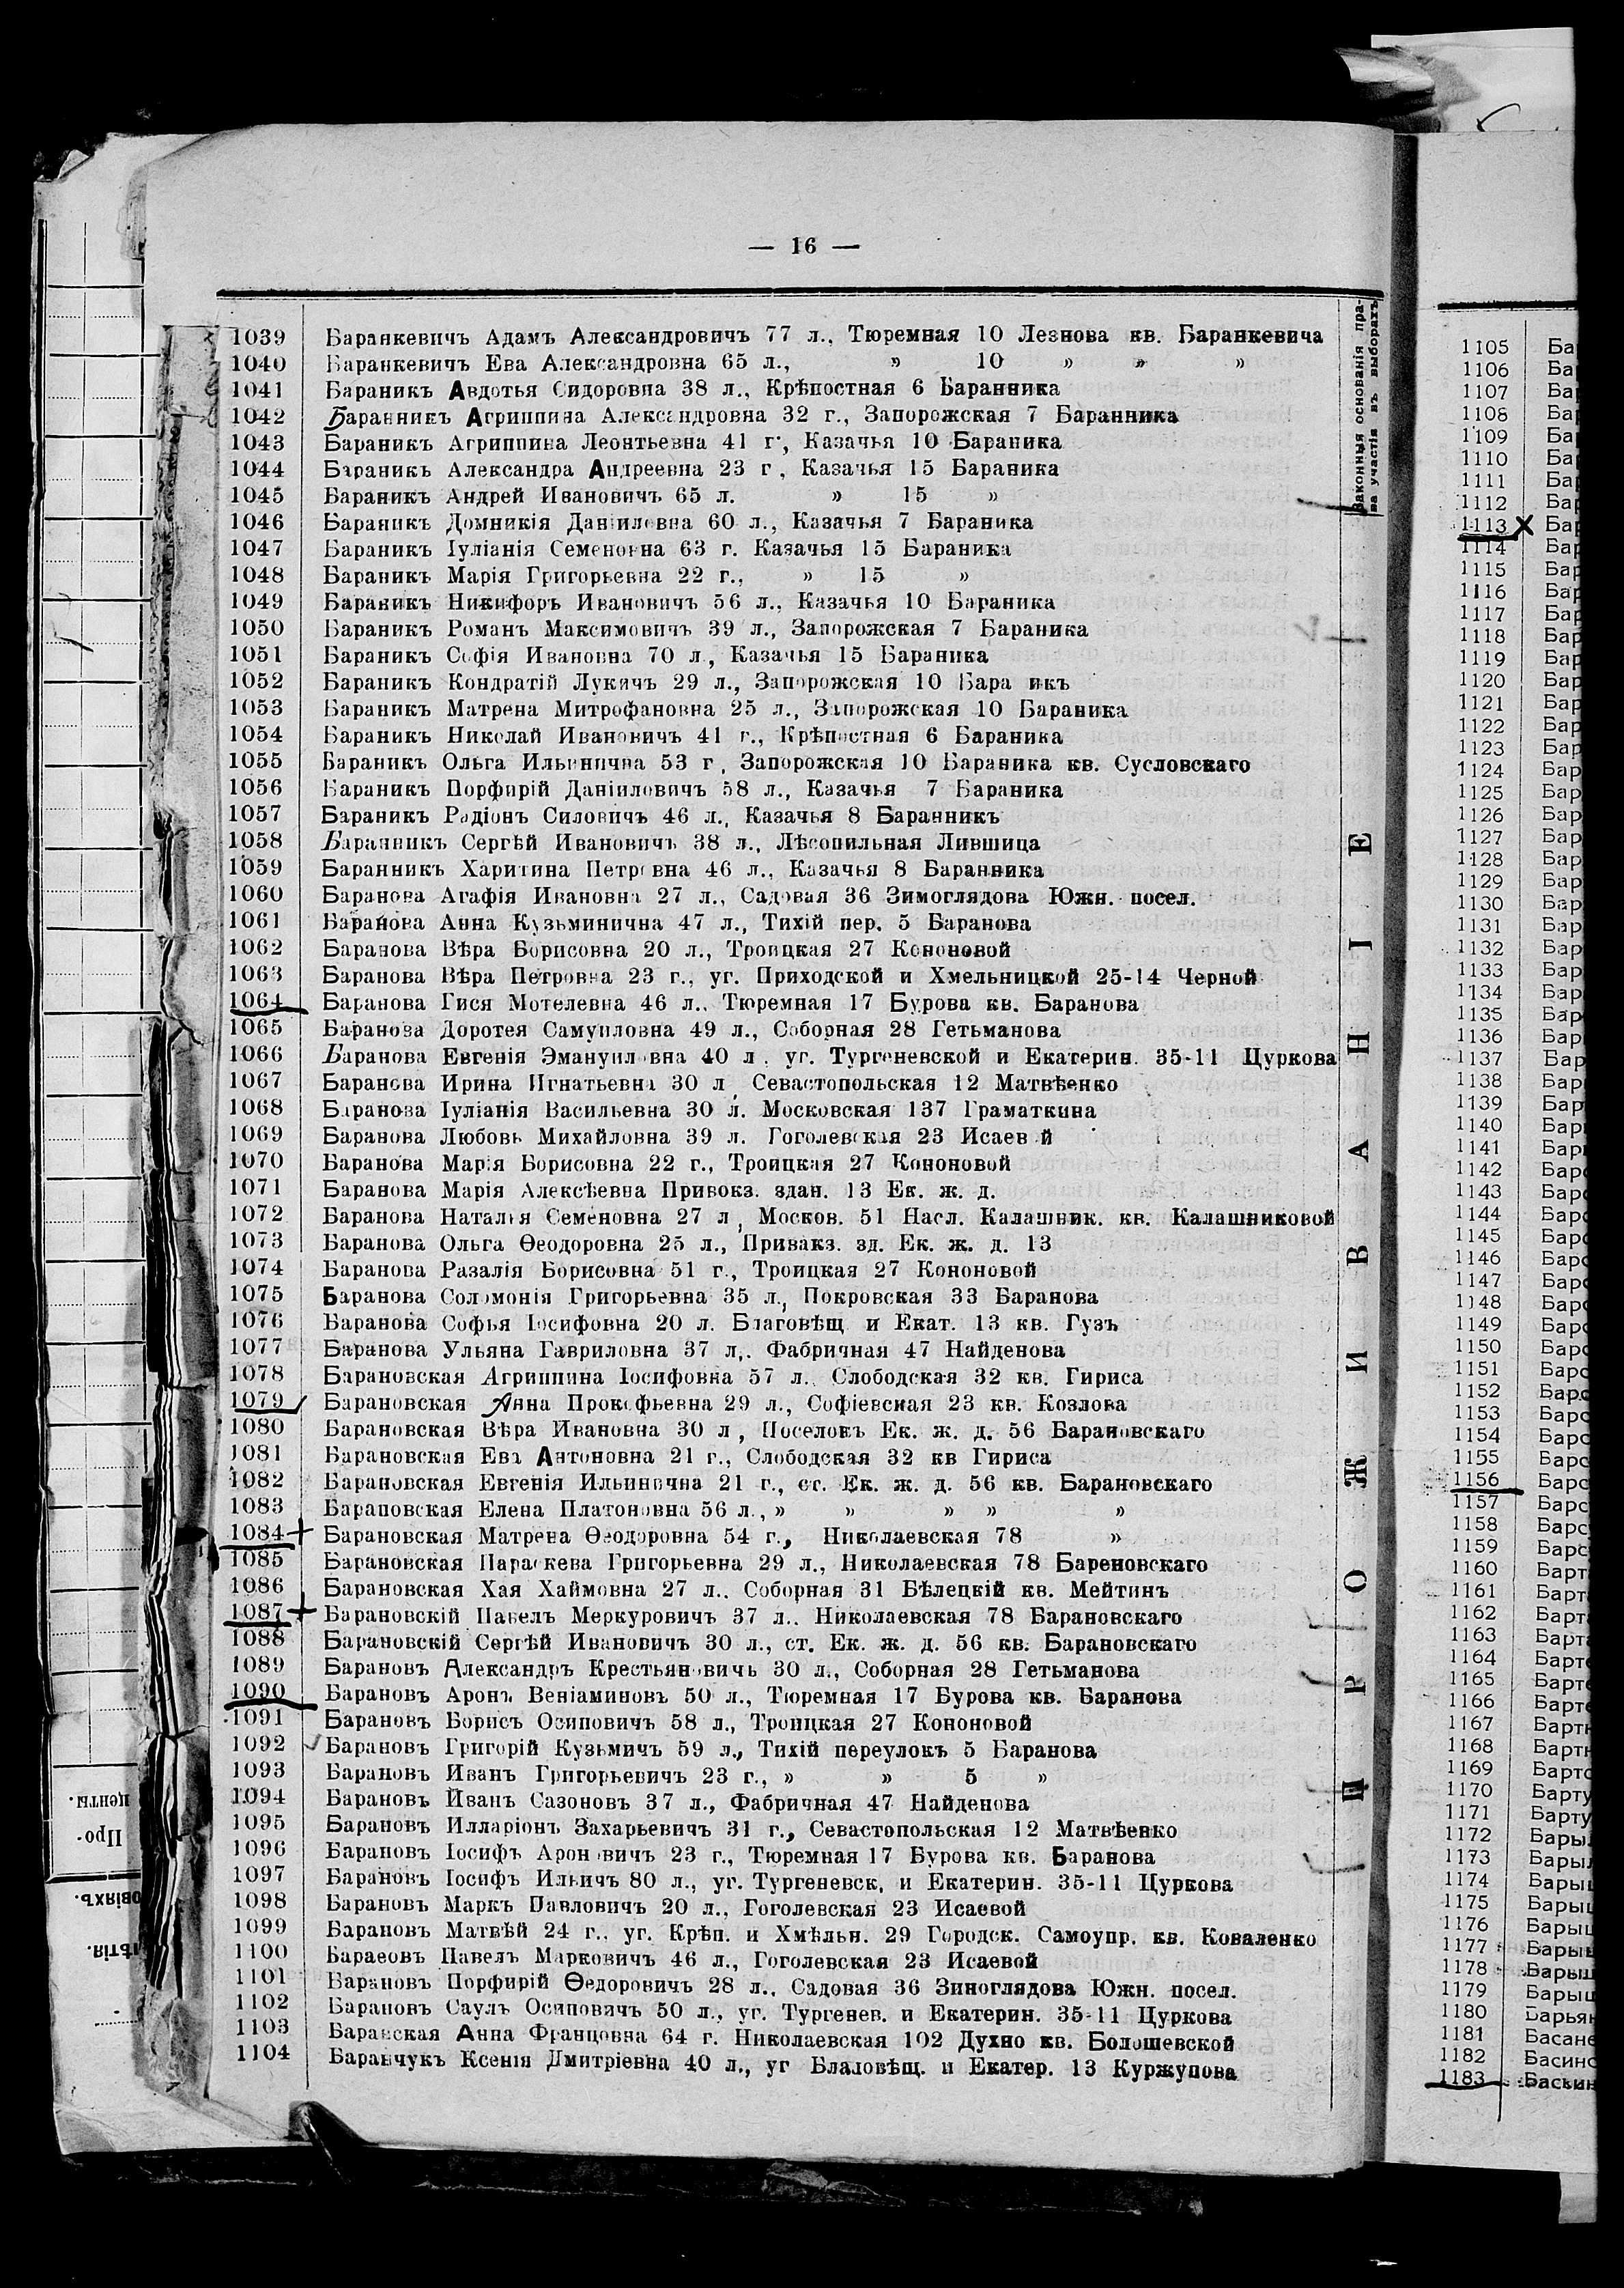 — 16 —
Законныя основанія пра-
ва участія въ выборахъ
ПРОЖИВАНІЕ
1039 Баранкевичъ Адамъ Александровичъ 77 л., Тюремная 10 Лезнова кв. Баранкевича
1040 Баранкевичъ Ева Александровна 65 л., » 10 » » »
1041 Бараникъ Авдотья Сидоровна 38 л., Крѣпостная 6 Баранника
1042 Баранникъ Агриппина Александровна 32 г., Запорожская 7 Баранника
1043 Бараникъ Агриппина Леонтьевна 41 г., Казачья 10 Бараника
1044 Бараникъ Александра Андреевна 23 г, Казачья 15 Бараника
1045 Бараникъ Андрей Ивановичъ 65 л. » 15 »
1046 Бараникъ Домникія Даніиловна 60 л., Казачья 7 Бараника
1047 Бараникъ Іуліанія Семеновна 63 г. Казачья 15 Бараника
1048 Бараникъ Марія Григорьевна 22 г., » 15 »
1049 Бараникъ Никифоръ Ивановичъ 56 л., Казачья 10 Бараника
1050 Бараникъ Романъ Максимовичъ 39 л., Запорожская 7 Бараника
1051 Бараникъ Софія Ивановна 70 л., Казачья 15 Бараника
1052 Бараникъ Кондратій Лукичъ 29 л., Запорожская 10 Бара икъ
1053 Бараникъ Матрена Митрофановна 25 л., Запорожская 10 Бараника
1054 Бараникъ Николай Ивановичъ 41 г., Крѣпостная 6 Бараника
1055 Бараникъ Ольга Ильинична 53 г, Запорожская 10 Бараника кв. Сусловскаго
1056 Бараникъ Порфирій Даніиловичъ 58 л., Казачья 7 Бараника
1057 Бараникъ Радіонъ Силовичъ 46 л., Казачья 8 Баранникъ
1058 Баранникъ Сергѣй Ивановичъ 38 л., Лѣсопильная Лившица
1059 Баранникъ Харитина Петровна 46 л., Казачья 8 Баранника
1060 Баранова Агафія Ивановна 27 л., Садовая 36 Зимоглядова Южн. посел.
1061 Баранова Анна Кузьминична 47 л., Тихій пер. 5 Баранова
1062 Баранова Вѣра Борисовна 20 л., Троицкая 27 Кононовой
1063 Баранова Вѣра Петровна 23 г., уг. Приходской и Хмельницкой 25-14 Черной
1064 Баранова Гися Мотелевна 46 л., Тюремная 17 Бурова кв. Баранова
1065 Баранова Доротея Самуиловна 49 л., Соборная 28 Гетьманова
1066 Баранова Евгенія Эмануиловна 40 л., уг. Тургеневской и Екатерин. 35-11 Цуркова
1067 Баранова Ирина Игнатьевна 30 л, Севастопольская 12 Матвѣенко
1068 Баранова Іуліанія Васильевна 30 л. Московская 137 Граматкина
1069 Баранова Любовь Михайловна 39 л. Гоголевская 23 Исаев й
1070 Баранова Марія Борисовна 22 г., Троицкая 27 Кононовой
1071 Баранова Марія Алексѣевна Привокз. здан. 13 Ек. ж. д.
1072 Баранова Наталья Семеновна 27 л, Москов. 51 Насл. Калашник. кв. Калашниковой
1073 Баранова Ольга Ѳеодоровна 25 л., Привакз. зд. Ек. ж. д. 13
1074 Баранова Разалія Борисовна 51 г., Троицкая 27 Кононовой
1075 Баранова Соломонія Григорьевна 35 л., Покровская 33 Баранова
1076 Баранова Софья Іосифовна 20 л. Благовѣщ и Екат. 13 кв. Гузъ
1077 Баранова Ульяна Гавриловна 37 л,. Фабричная 47 Найденова
1078 Барановская Агриппина Іосифовна 57 л. Слободская 32 кв. Гириса
1079 Барановская Анна Прокофьевна 29 л., Софіевская 23 кв. Козлова
1080 Барановская Вѣра Ивановна 30 л, Поселокъ Ек. ж. д. 56 Барановскаго
1081 Барановская Ева Антоновна 21 г., Слободская 32 кв Гириса
1082 Барановская Евгенія Ильинична 21 г., ст. Ек. ж. д. 56 кв. Барановскаго
1083 Барановская Елена Платоновна 56 л., » » » » »
1084 Барановская Матрена Ѳеодоровна 54 г., Николаевская 78 »
1085 Барановская Параскева Григорьевна 29 л., Николаевская 78 Бареновскаго
1086 Барановская Хая Хаймовна 27 л.. Соборная 31 Бѣлецкій кв. Мейтинъ
1087 Барановскій Павелъ Меркуровичъ 37 л.. Николаевская 78 Барановскаго
1088 Барановскій Сергѣй Ивановичъ 30 л., ст. Ек. ж. д. 56 кв. Барановскаго
1089 Барановъ Александръ Крестьяновичь 30 л., Соборная 28 Гетьманова
1090 Барановъ Аронъ Веніаминовъ 50 л., Тюремная 17 Бурова кв. Баранова
1091 Барановъ Борисъ Осиповичъ 58 л., Троицкая 27 Кононовой
1092 Барановъ Григорій Кузьмичъ 59 л., Тихій переулокъ 5 Баранова
1093 Барановъ Иванъ Григорьевичъ 23 г., » » 5 »
1094 Барановъ Иванъ Сазоновъ 37 л., Фабричная 47 Найденова
1095 Барановъ Илларіонъ Захарьевичъ 31 г., Севастопольская 12 Матвѣенко
1096 Барановъ Іосифъ Ароновичъ 23 г., Тюремная 17 Бурова кв. Баранова
1097 Барановъ Іосифъ Ильичъ 80 л., уг. Тургеневск, и Екатерин. 35-11 Цуркова
1098 Барановъ Маркъ Павловичъ 20 л., Гоголевская 23 Исаевой
1099 Барановъ Матвѣй 24 г., уг. Крѣп. и Хмѣльн. 29 Городск. Самоупр. кв. Коваленко
1100 Бараеовъ Павелъ Марковичъ 46 л., Гоголевская 23 Исаевой
1101 Барановъ Порфирій Ѳедоровичъ 28 л.. Садовая 36 Зиноглядова Южн. посел.
1102 Барановъ Саулъ Осиповичъ 50 л., уг. Тургенев. и Екатерин. 35-11 Цуркова
1103 Баранская Анна Францовна 64 г. Николаевская 102 Духно кв. Болошевской
1104 Баранчукъ Ксенія Дмитріевна 40 л., уг Бладовѣщ. и Екатер. 13 Куржупова
1105 Ба
1106 Ба
1107 Ба
1108 Ба
1109 Ба
1110 Ба
1111 Ба
1112 Ба
1113 Бар
1114 Бар
1115 Бар
1116 Бар
1117 Бар
1118 Бар
1119 Бар
1120 Бар
1121 Бар
1122 Бар
1123 Бар
1124 Бар
1125 Бар
1126 Бар
1127 Бар
1128 Бар
1129 Бар
1130 Бар
1131 Бар
1132 Бар
1133 Бар
1134 Бар
1135 Бар
1136 Бар
1137 Бар
1138 Бар
1139 Бар
1140 Бар
1141 Бар
1142 Барс
1143 Барс
1144 Барс
1145 Барс
1146 Барс
1147 Барс
1148 Барс
1149 Барс
1150 Барс
1151 Барс
1152 Барс
1153 Барс
1154 Барс
1155 Барс
1156 Барс
1157 Барс
1158 Барс
1159 Барс
1160 Барт
1161 Барт
1162 Барт
1163 Барт
1164 Барте
1165 Барте
1166 Барте
1167 Барт
1168 Барт
1169 Барто
1170 Барту
1171 Барту
1172 Бары
1173 Бары
1174 Бары
1175 Бары
1176 Бары
1177 Бары
1178 Бары
1179 Бары
1180 Барья
1181 Басан
1182 Басин
1183 Баскин
Про-
центы.
овіяхъ.
лѣтія.